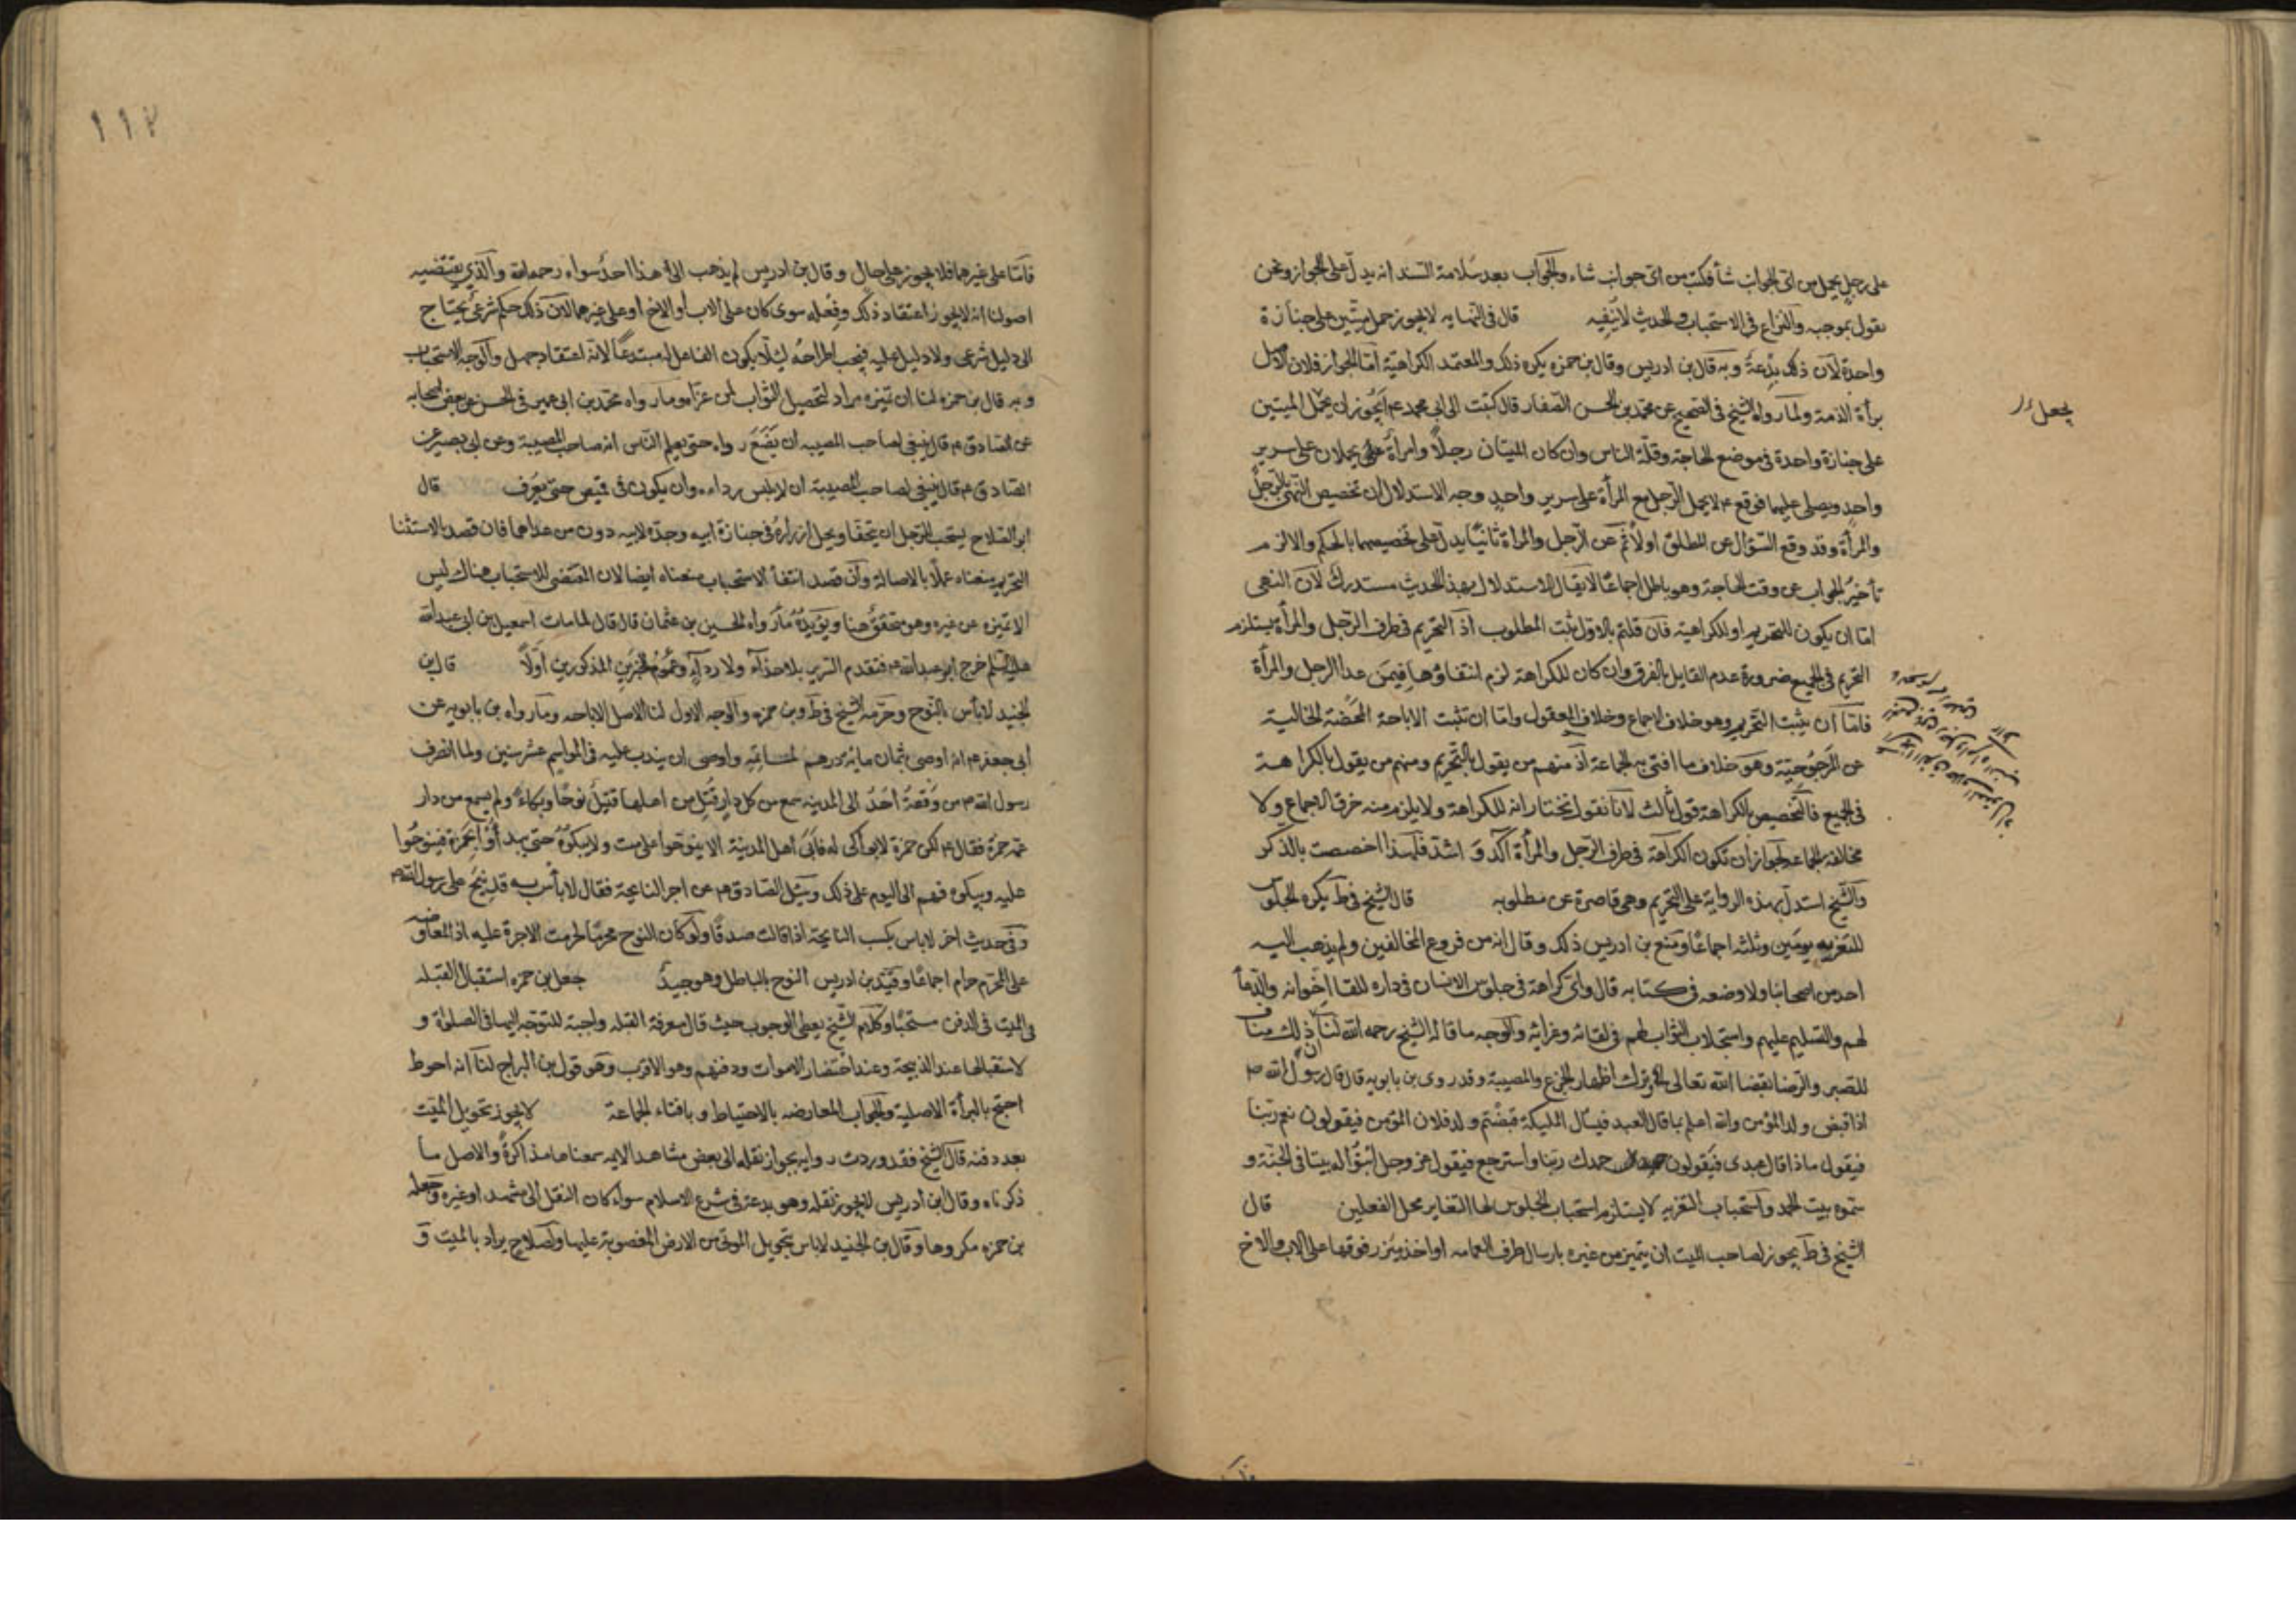 على رجل يحمل من اى الجوانب شأ فكتب من اى جوانب شاء والجواب بعد سلامة السند انه يدل على الجواز ونحن
نقول بموجبه والنزاع فى الاستحباب والحديث لا ينفيه قال فى النهايه لا يجوز حمل ميتين على جنازة
واحدة لان ذلك بدعة وبه قال بن ادريس وقال بن حمزه يكره ذلك والمعتمد الكراهية امّا الجواز فلان الاصل
برأة الذمة ولما رواه الشيخ فى الصحيح عن محمد بن الحسن الصفار قال كتبت الى ابى محمد ع ايجوز ان يجعل الميتين
على جنازة واحدة فى موضع الحاجة وقلّة الناس وان كان الميتان رجلاً وامرأة يحملان على سرير
واحدٍ ويصلى عليهما فوقع ع لا يحمل الرجل مع المرأة على سرير واحدٍ وجه الاستدلال ان تخصيص النهى بالرجل
والمرأة وقد وقع السؤال عن المطلق اولاً ثم عن الرجل والمراة ثانيًا يدل على تخصيصهما بالحكم والا لزم
تأخير الجواب عن وقت الحاجة وهو باطل اجماعًا لا يقال الاستدلال بهذا الحديث مستدرك لان النهى
امّا ان يكون للتحريم او للكراهية فان قلتم بالاول ثبت المطلوب اذ التحريم فى طرف الرّجل والمرأة يستلزم
التحريم فى الجميع ضرورة عدم القايل بالفرق وان كان للكراهة لزم انتفاؤها فيمن عدا الرجل والمرأة
فامّا ان يثبت التحريم وهو خلاف الاجماع وخلاف المعقول وامّا ان تثبت الاباحة المحضة الخالية
عن المرجوحيّة وهو خلاف ما افتى به الجماعة اذ منهم من يقول بالتحريم ومنهم من يقول بالكراهة
فى الجميع فالتخصيص بالكراهة قول ثالث لانا نقول نختار انه للكراهة ولا يلزم منه خرق الاجماع ولا
مخالفة الجماعة لجواز ان تكون الكراهة فى طرف الرّجل والمرأة آكد و اشدّ فلهذا اختصت بالذكر
والشيخ استدل بهذه الرواية على التحريم وهى قاصرة عن مطلوبه قال الشيخ فى ط يكره الجلوس
للتعزيه يومين وثلثه اجماعًا ومنع بن ادريس ذلك وقال انه من فروع المخالفين ولم يذهب اليه
احد من اصحابنا ولا وضعه فى كتابه قال واى كراهة فى جلوس الانسان فى داره للقا اخوانه والدعأ
لهم والتسليم عليهم واستجلاب الثواب لهم فى لقائه وعزائه والوجه ما قاله الشيخ رحمه الله لنا ان ذلك مناف
للصبر والرضا بقضا الله تعالى ترك اظهار الجزع والمصيبة وقد روى بن بابويه قال قال رسول الله ص
اذا قبض ولد المؤمن والله اعلم بما قال العبد فيسال المليكة قبضتم ولد فلان المؤمن فيقولون نعم ربّنا
فيقول ماذا قال عبدى فيقولون حمدك ربّنا واسترجع فيقول عز وجل ابنوا له بيتا فى الجنّة و
سموه بيت الحمد واستحباب التعزيه لا يستلزم استحباب الجلوس لها التغاير محل الفعلين قال
الشيخ فى ط يجوز لصاحب الميت ان يتميز من غيره بارسال طرف العمامه او اخذ ميزر فوقها على الاب والاخ
يجعل
١١٢
فامّا على غيرهما فلا يجوز على حال وقال بن ادريس لم يذهب الى هذا احدٌ سواه رحمه الله والذى يقتضيه
اصولنا انه لا يجوز اعتقاد ذلك وفعله سوى كان على الاب او الاخ او على غيرهما لان ذلك حكم شرعىّ يحتاج
الى دليل شرعى ولا دليل عليه فيجب اطراحه ليلّا يكون الفاعل له مبتدعًا لانّه اعتقاد جهل والوجه الاستحباب
وبه قال بن حمزه لنا ان تميّزه مراد لتحصيل الثواب لمن عزاه وما رواه محمد بن ابى عمير فى الحسن عن بعض اصحابه
عن الصادق ع قال ينبغى لصاحب المصيبه ان يضع رداه حتى يعلم الناس انه صاحب المصيبة وعن ابى بصير عن
الصادق ع قال ينبغى لصاحب المصيبة ان لا يلبس رداءه وان يكون فى قميص حتى يعرف قال
ابو الصلاح يستحب للرجل ان يتحفا ويحل ازراره فى جنازة ابيه وجدّه لابيه دون من عداهما فان قصد بالاستثنا
التحريم منعناه عملًا بالاصالة وان قصد انتفأ الاستحباب منعناه ايضا لان المقتضى للاستحباب هناك ليس
الا تميّزه عن غيره وهو متحقّقٌ هنا ويؤيده ما رواه الحسين بن عثمان قال قال لما مات اسمعيل بن ابى عبد الله
عليه السلم خرج ابو عبد الله ع فتقدم السرير بلا حذآء ولا ردآء وعموم الخبرين المذكورين اولًا قال بن
الجنيد لا بأس بالنوح وحرّمه الشيخ فى ط وبن حمزه والوجه الاول لنا الاصل الاباحه وما رواه بن بابويه عن
ابى جعفر ع انه اوصى بثمان مائة درهم لماتمِه واوصى ان يندب عليه فى المواسم عشر سنين ولما انصرف
رسول الله ص من وقعة اُحُد الى المدينه سمع من كل دارٍ قُتِل من اهلها قتيلٌ نوحًا وبكاءً ولم يسمع من دار
عمه حمزة فقال ع لكن حمزة لا بواكى له فآلى اهل المدينة الا ينوحوا على ميت ولا يبكوه حتى يبدأوا بحمزة فينوحوا
عليه ويبكوه فهم الى اليوم على ذلك وسئل الصادق ع عن اجر النايحة فقال لا بأس به قد نيح على رسول الله ص
وفى حديث اخر لا باس بكسب النايحة اذا قالت صدقًا ولو كان النوح محرمًا لحرمت الاجرة عليه اذ المعاوضه
على المحرّم حرام اجماعًا وقيّد بن ادريس النوح بالباطل وهو جيدٌ جعل بن حمزه استقبال القبله
فى الميت فى الدفن مستحبًا وكلام الشيخ يعطى الوجوب حيث قال معرفة القبله واجبة للتوجّه اليها فى الصلوة و
لاستقبالها عند الذبيحة وعند احتضار الاموات ودفنهم وهو الاقرب وهو قول بن البراج لنا انه احوط
احتج بالبرأة الاصلية والجواب المعارضه بالاحتياط وبافتاء الجماعة لا يجوز تحويل الميّت
بعد دفنه قال الشيخ فقد وردت روايه بجواز نقله الى بعض مشاهد الايمه سمعناها مذاكرةً والاصل ما
ذكرناه وقال ابن ادريس لا يجوز نقله وهو بدعة فى شرع الاسلام سواء كان النقل الى مشهد او غيره وجعله
بن حمزه مكروها وقال بن الجنيد لا باس بتحويل الموتى من الارض المغصوبة عليها ولصلاح يراد بالميت و